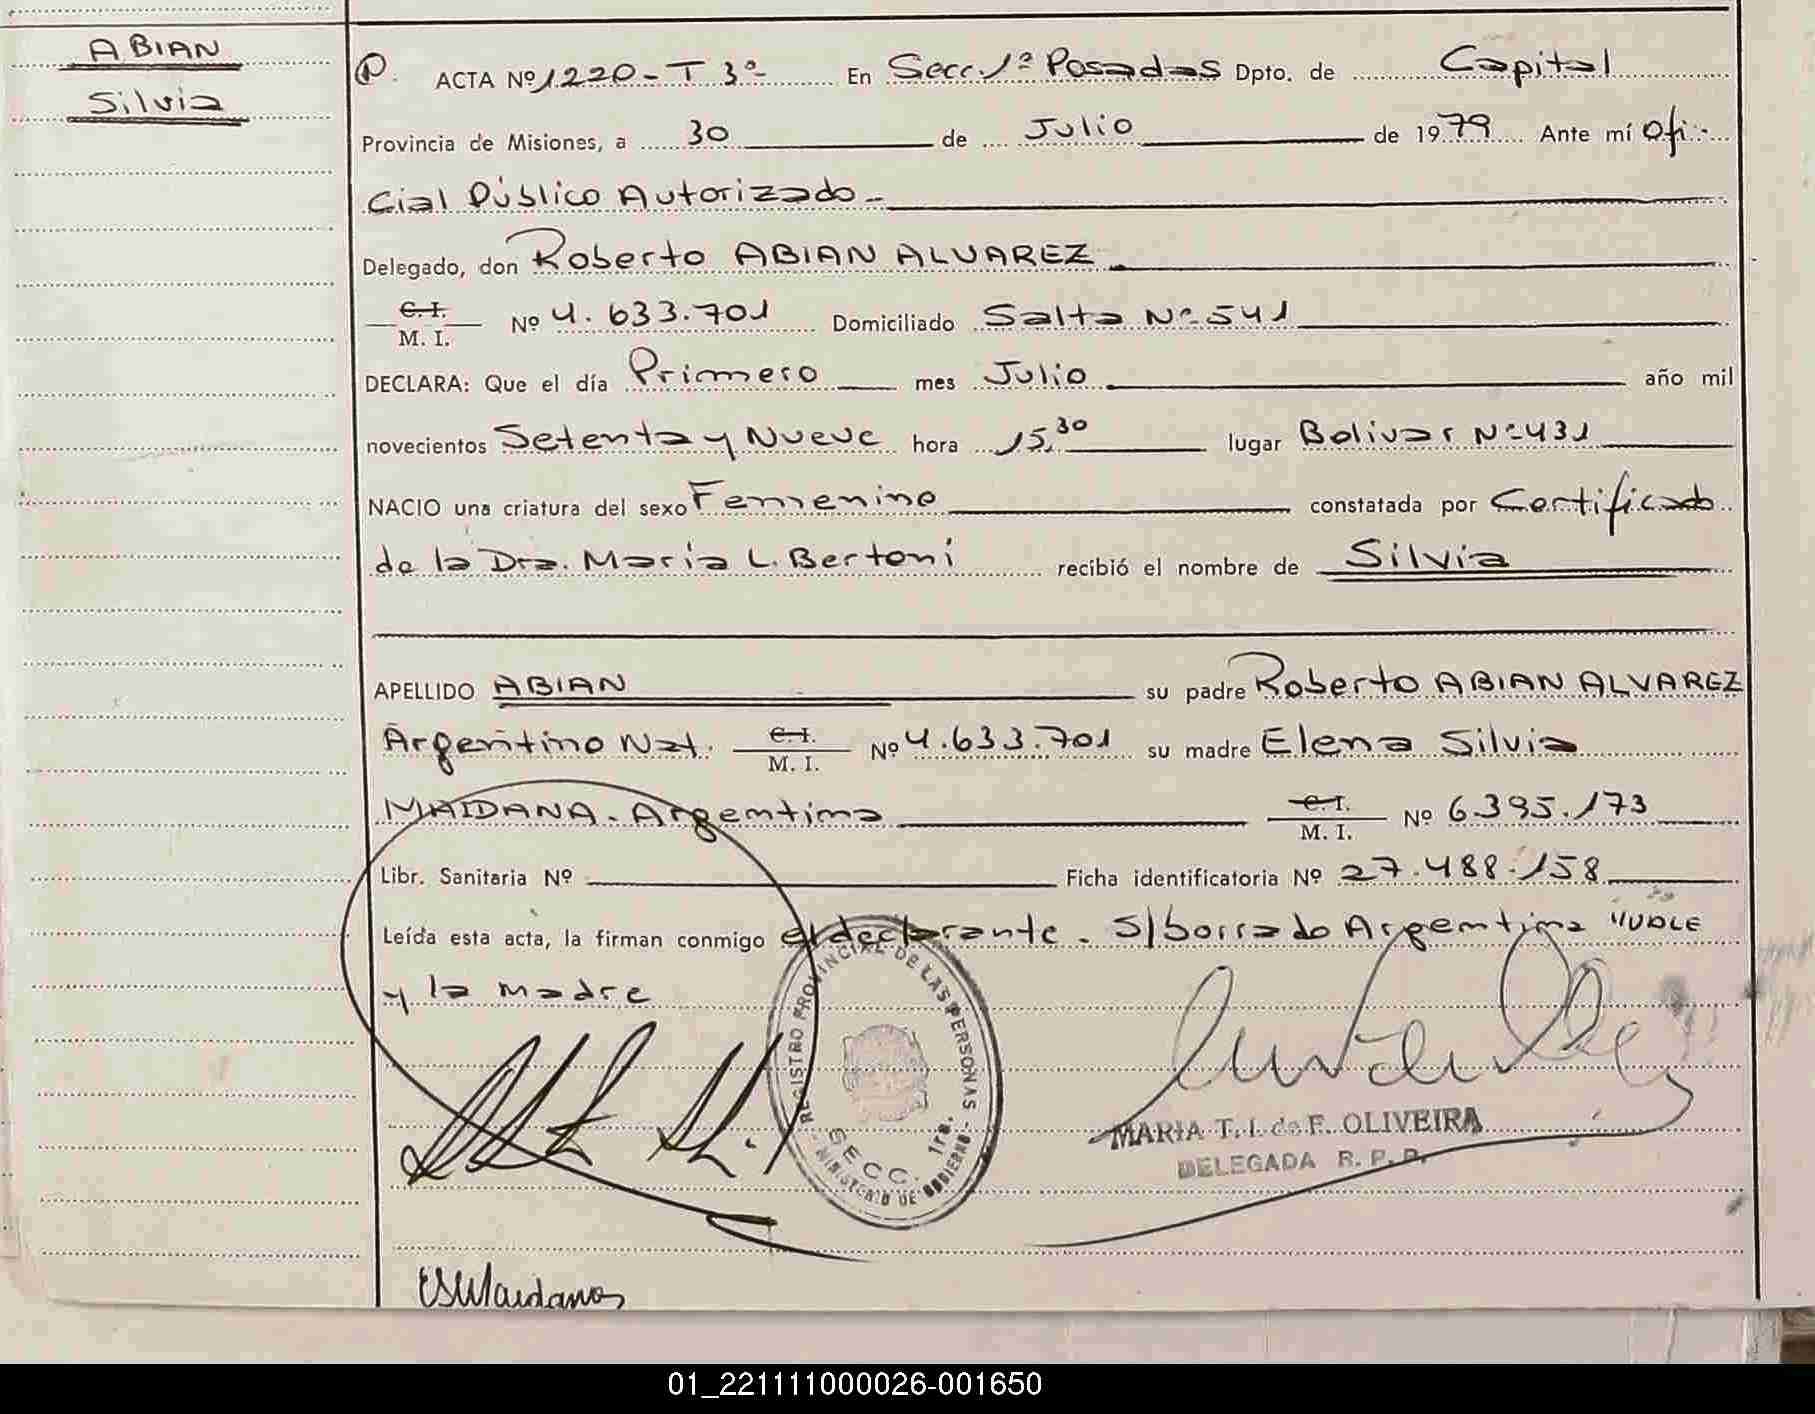 ABIAN
Silvia
P. ACTA Nº 1220 - T 3º - En Secc. 1ª Posadas Dpto. de Capital
Provincia de Misiones, a 30 de Julio de 1979 Ante mí Ofi-
cial Público Autorizado -
Delegado, don Roberto ABIAN ALVAREZ
C. I.
M. I. Nº 4.633.701 Domiciliado Salta Nº 541
DECLARA: Que el día Primero mes Julio año mil
novecientos Setenta y Nueve hora 15,30 lugar Bolivar Nº 431
NACIO una criatura del sexo Femenino constatada por Certificado
de la Dra. María L. Bertoni recibió el nombre de Silvia
APELLIDO ABIAN su padre Roberto ABIAN ALVAREZ
Argentino Nat. C. I. M. I. Nº 4.633.701 su madre Elena Silvia
MAIDANA. Argentina C. I. M. I. Nº 6.395.173
Libr. Sanitaria Nº Ficha identificatoria Nº 27.488.158
Leída esta acta, la firman conmigo el declarante. S/borrado Argentina "VALE
y la madre
REGISTRO PROVINCIAL DE LAS PERSONAS
SECC. 1ra.
- MINISTERIO DE GOBIERNO -
MARIA T. I. de F. OLIVEIRA
DELEGADA R. P. P.
ESMaidana
01_221111000026-001650